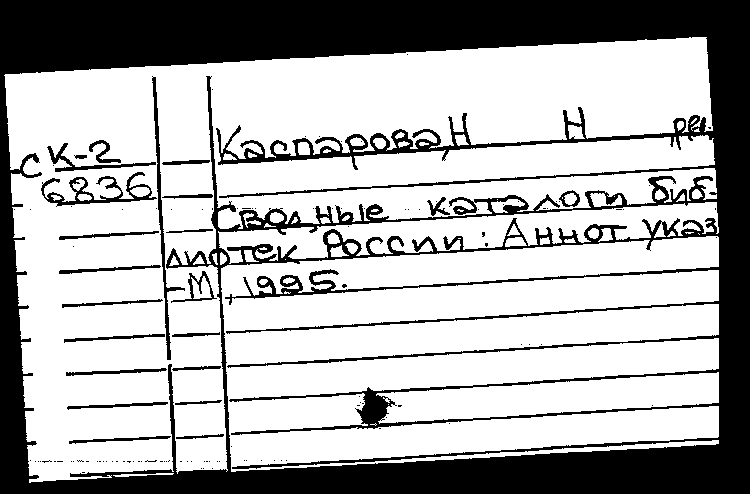 СК-2
6836
Каспарова, Н Н ред.
Сводные каталоги биб-
лиотек России: Аннот. указ
-М., 1995.